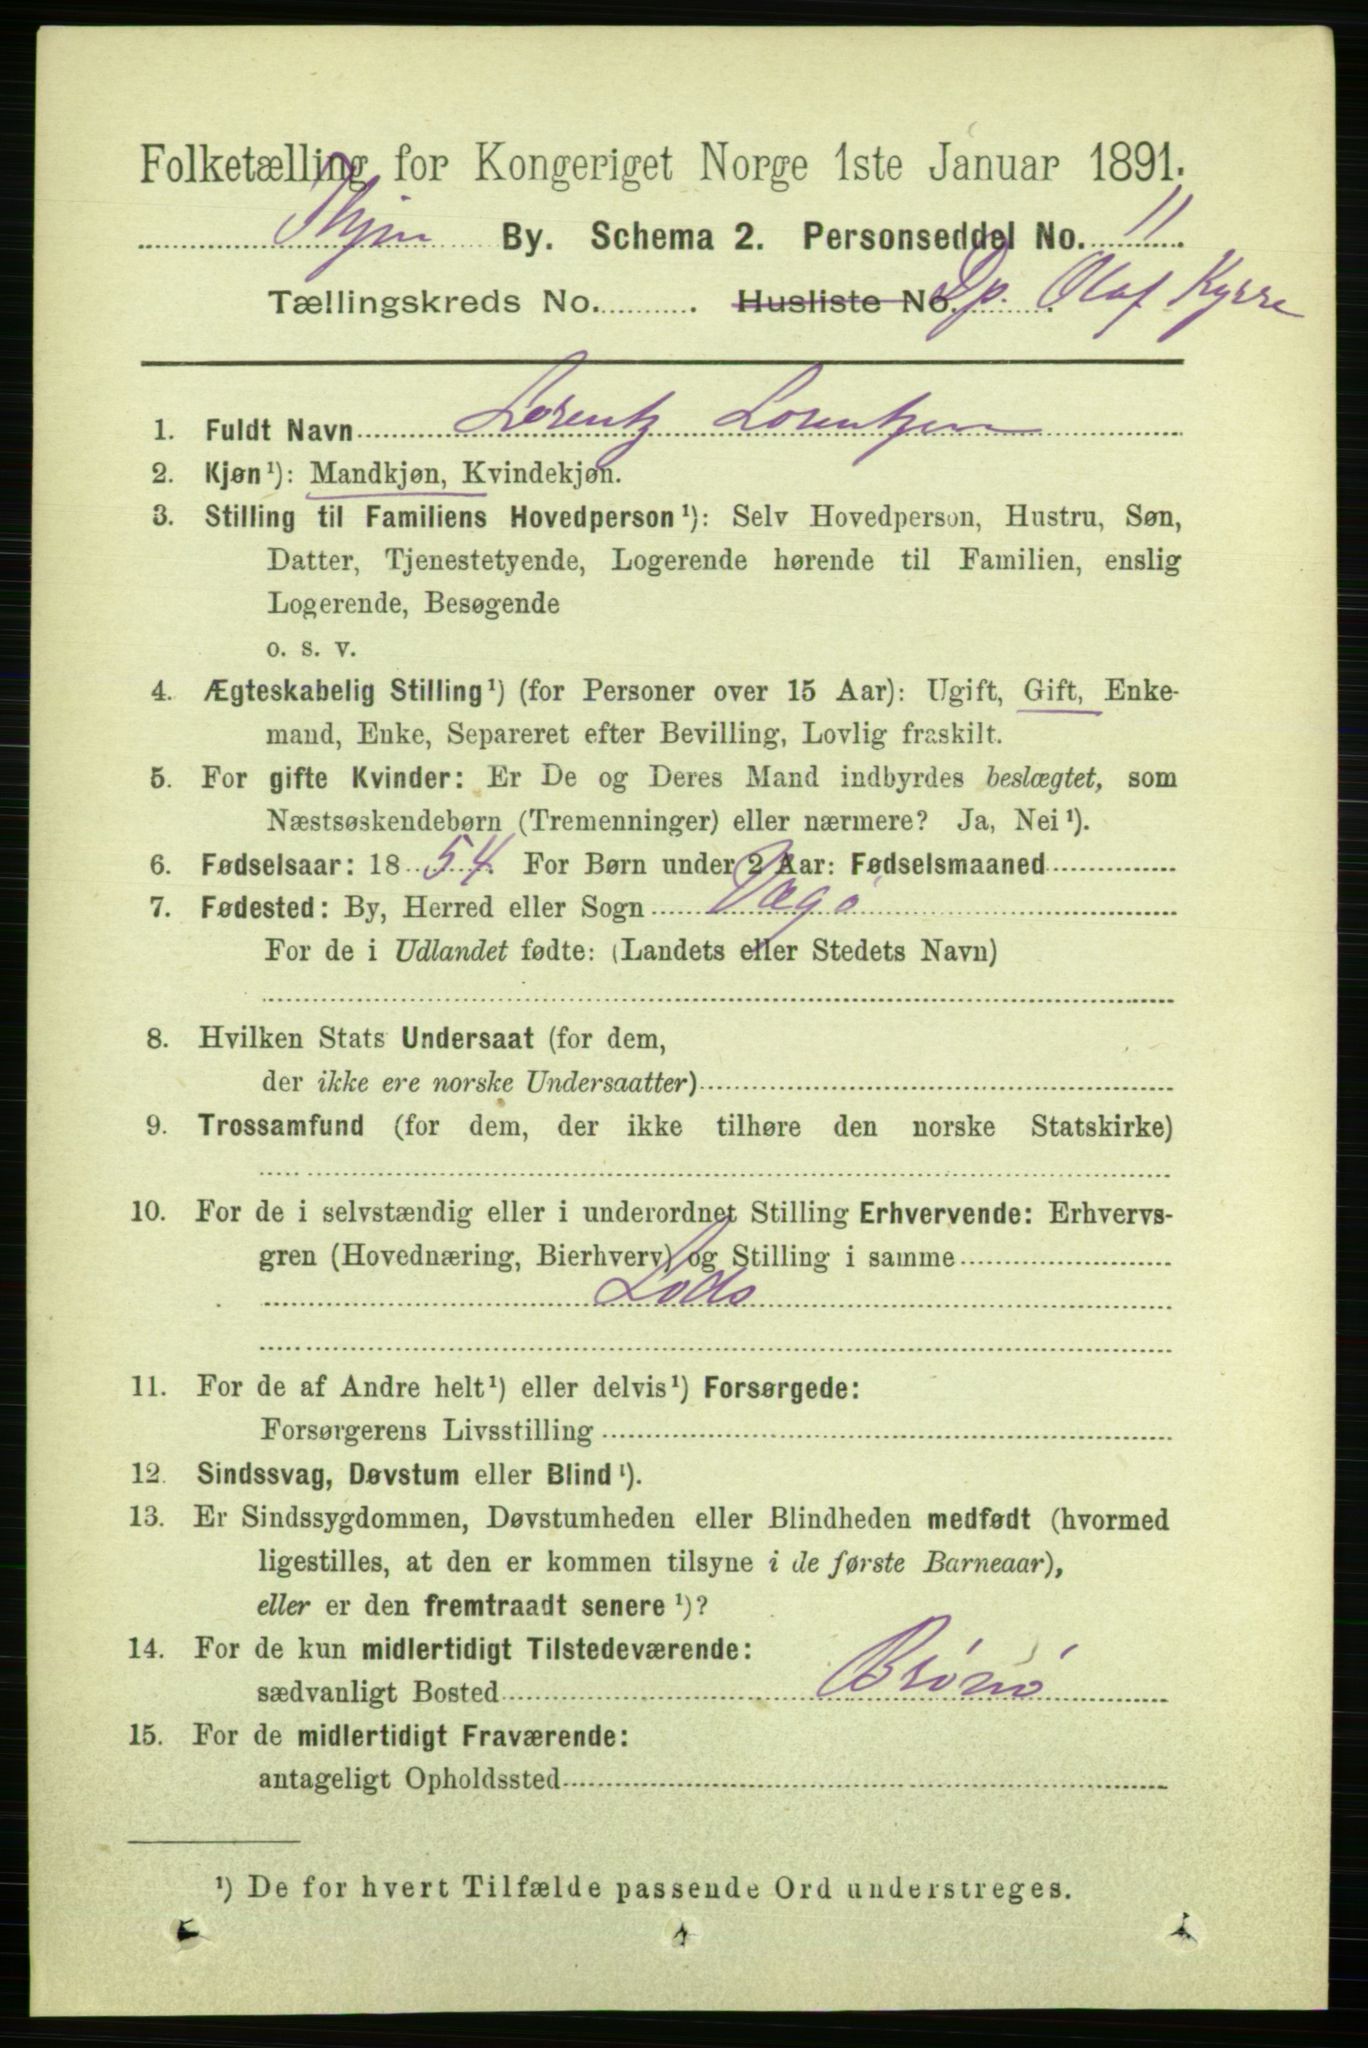 Folketælling for Kongeriget Norge 1ste Januar 1891.
By. Schema 2. Personseddel No. 11
Tællingskreds No. . Husliste No. Dp. Olaf Kyrre
1. Fuldt Navn Lorentz Lorentzen
2. Kjøn ¹): Mandkjøn, Kvindekjøn.
3. Stilling til Familiens Hovedperson ¹): Selv Hovedperson, Hustru, Søn,
Datter, Tjenestetyende, Logerende hørende til Familien, enslig
Logerende, Besøgende
o. s. v.
4. Ægteskabelig Stilling ¹) (for Personer over 15 Aar): Ugift, Gift, Enke-
mand, Enke, Separeret efter Bevilling, Lovlig fraskilt.
5. For gifte Kvinder: Er De og Deres Mand indbyrdes beslægtet, som
Næstsøskendebørn (Tremenninger) eller nærmere? Ja, Nei ¹).
6. Fødselsaar: 1854. For Børn under 2 Aar: Fødselsmaaned
7. Fødested: By, Herred eller Sogn Vegø
For de i Udlandet fødte: (Landets eller Stedets Navn)
8. Hvilken Stats Undersaat (for dem,
der ikke ere norske Undersaatter)
9. Trossamfund (for dem, der ikke tilhøre den norske Statskirke)
10. For de i selvstændig eller i underordnet Stilling Erhvervende: Erhvervs-
gren (Hovednæring, Bierhverv) og Stilling i samme
Lods
11. For de af Andre helt ¹) eller delvis ¹) Forsørgede:
Forsørgerens Livsstilling
12. Sindssvag, Døvstum eller Blind ¹).
13. Er Sindssygdommen, Døvstumheden eller Blindheden medfødt (hvormed
ligestilles, at den er kommen tilsyne i de første Barneaar),
eller er den fremtraadt senere ¹)?
14. For de kun midlertidigt Tilstedeværende:
sædvanligt Bosted Brønø
15. For de midlertidigt Fraværende:
antageligt Opholdssted
¹) De for hvert Tilfælde passende Ord understreges.